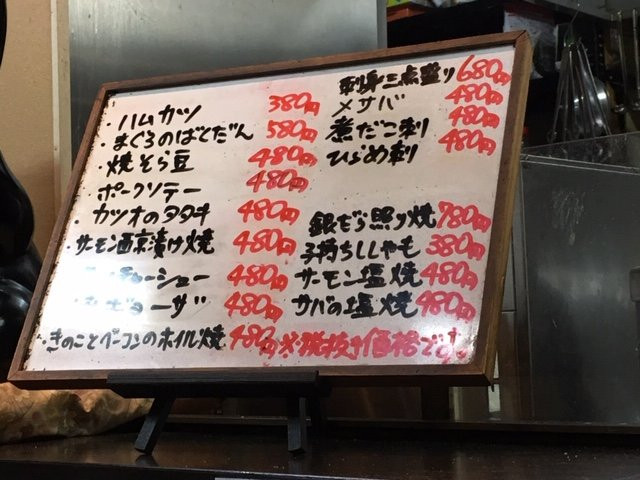 ・ハムカツ 380円
・まぐろのばくだん 580円
・焼そら豆 480円
ポークソテー 480円
・カツオのタタキ 480円
・サーモン西京漬け焼 480円
チャーシュー 480円
ギョーザ 480円
・きのことベーコンのホイル焼 480円
刺身三点盛り 680円
〆サバ 480円
煮だこ刺 480円
ひらめ刺 480円
銀だら照り焼 780円
子持ちししゃも 380円
サーモン塩焼 480円
サバの塩焼 480円
※税抜け価格です。